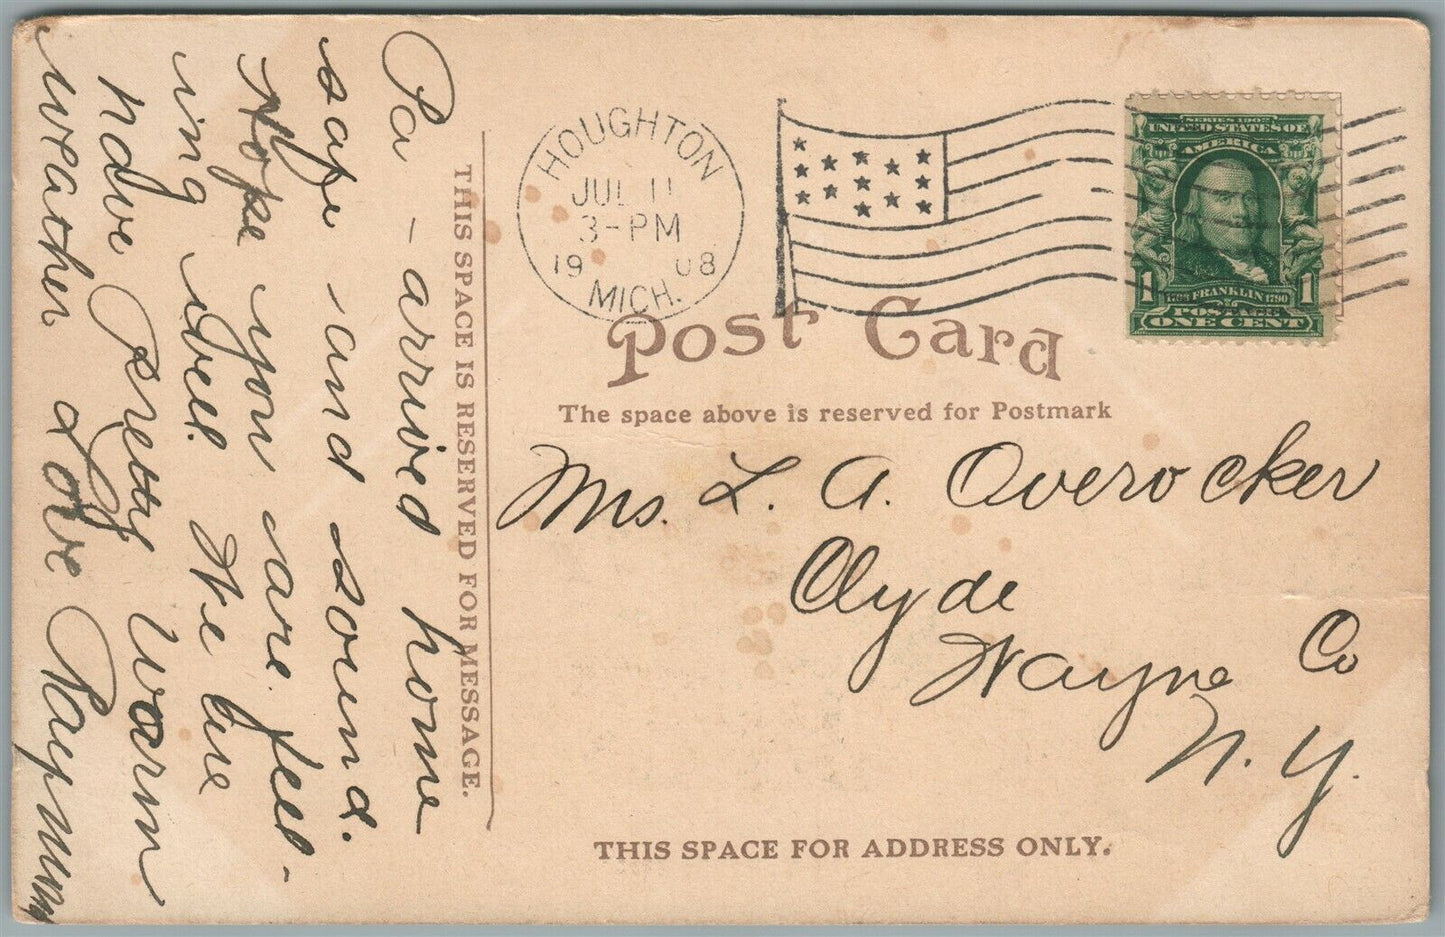 Pa - arrived home
safe and sound.
Hope you are feel-
ing well. We are
having pretty warm
weather Love Raymum
THIS SPACE IS RESERVED FOR MESSAGE.
HOUGHTON
JUL 11
3-PM
1908
MICH.
SERIES 1902
UNITED STATES OF
AMERICA
1 FRANKLIN 1790 1
POSTAGE
ONE CENT
Post Card
The space above is reserved for Postmark
Mrs. L. A. Overocker
Clyde
Wayne Co
N. Y.
THIS SPACE FOR ADDRESS ONLY.